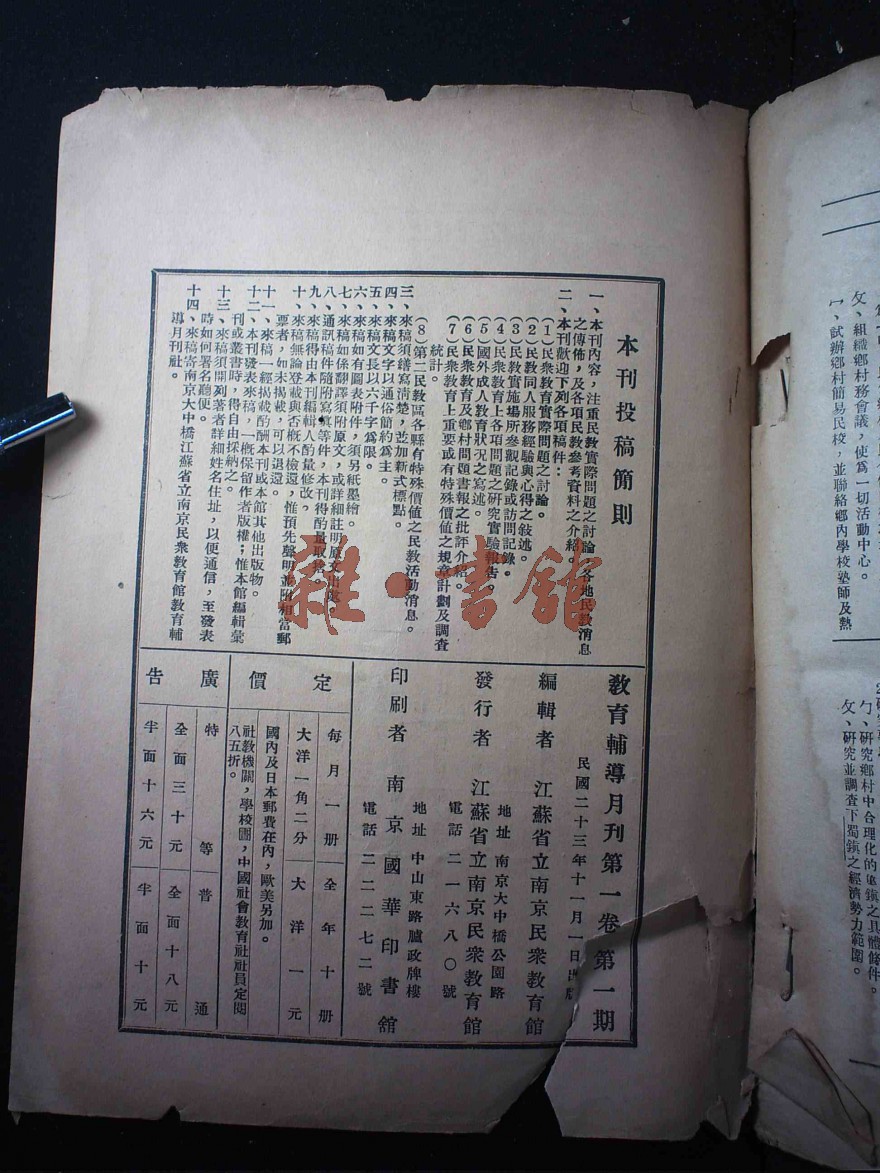 本刊投稿簡則
一、本刊內容，注重民教實際問題之討論，各地民教消息
之傳佈，及各項民教參考資料之介紹。
二、本刊歡迎下列各項稿件：
(1)民衆教育實際問題之討論。
(2)民教同人服務經驗與心得之敍述。
(3)民教實施場所參觀記錄或訪問記錄。
(4)民衆教育上各項問題之研究實驗報告。
(5)國外成人教育狀況之寫述。
(6)民衆教育及鄉村問題書報之批評介紹。
(7)民衆教育上重要或有特殊價値之規章計劃及調查
統計。
(8)第二民教區各縣有特殊價値之民教活動消息。
三、來稿須繕寫淸楚，並加新式標點。
四、來稿文字以通俗簡約爲主。
五、來稿文長以六千字爲限。
六、來稿如有圖表附件，須另紙墨繪。
七、來稿如係翻譯須附原文，或詳細註明原文出處。
八、通訊稿件隨附寫眞等件，本刊得酌量取捨。
九、來稿得由本刊編輯人酌量修改。
十、來稿無論登載與否槪不檢還，惟預先聲明並附相當郵
票者，如未揭載，可以退還。
十一、來稿一經揭載酌酬本刊或本館其他出版物。
十二、本刊發表來稿，一槪保留作者版權；惟本館編輯彙
刊或叢書時，得自由採納之。
十三、來稿須開列著者詳細姓名住址，以便通信，至發表
時如何署名聽便。
十四、來稿寄南京大中橋江蘇省立南京民衆教育館教育輔
導月刊社。
教育輔導月刊第一卷第一期
民國二十三年十一月一日出版
編輯者 江蘇省立南京民衆教育館
地址 南京大中橋公園路
發行者 江蘇省立南京民衆教育館
電話 二一六八〇號
地址 中山東路臚政牌樓
印刷者 南京國華印書館
電話 二二二七二號
定價
每月一册 全年十册
大洋一角二分 大洋一元
國內及日本郵費在內，歐美另加。
社教機關，學校團，中國社會教育社社員定閱
八五折。
廣告
特等 普通
全面三十元 全面十八元
半面十六元 半面十元
雜·書館
攵、組織鄉村務會議，使爲一切活動中心。
一、試辦鄉村簡易民校，並聯絡鄉內學校塾師及熱
勹、研究鄉村中合理化的鄉鎮之具體條件。
攵、研究並調查下蜀鎮之經濟勢力範圍。